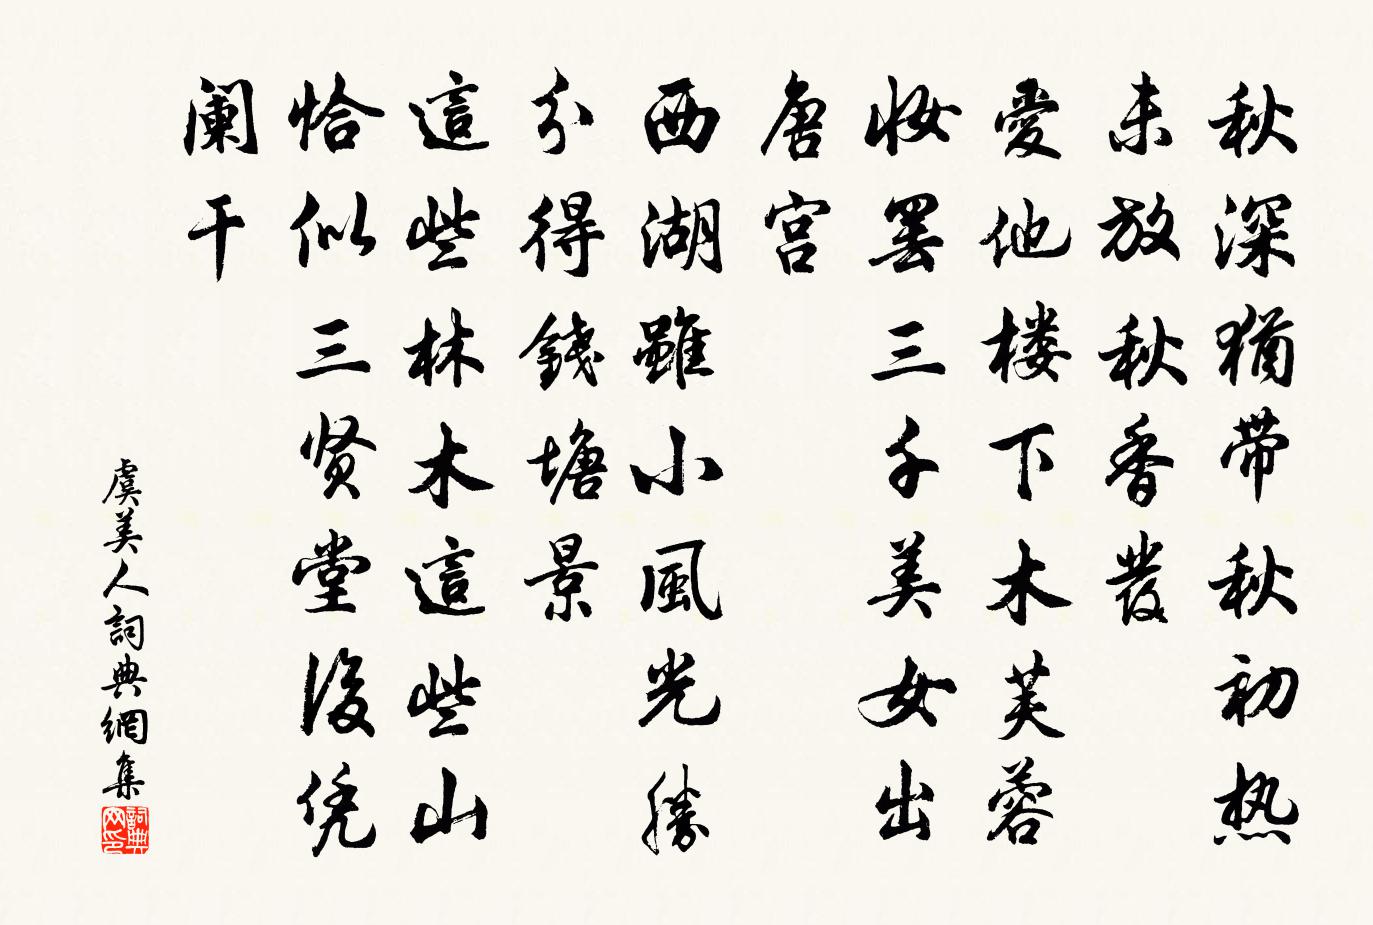 秋深猶带秋初热
未放秋香發
愛他楼下木芙蓉
妆罢三千美女出
唐宫
西湖雖小風光勝
分得錢塘景
這些林木這些山
恰似三贤堂後凭
阑干
虞美人詞典網集
詞典网印